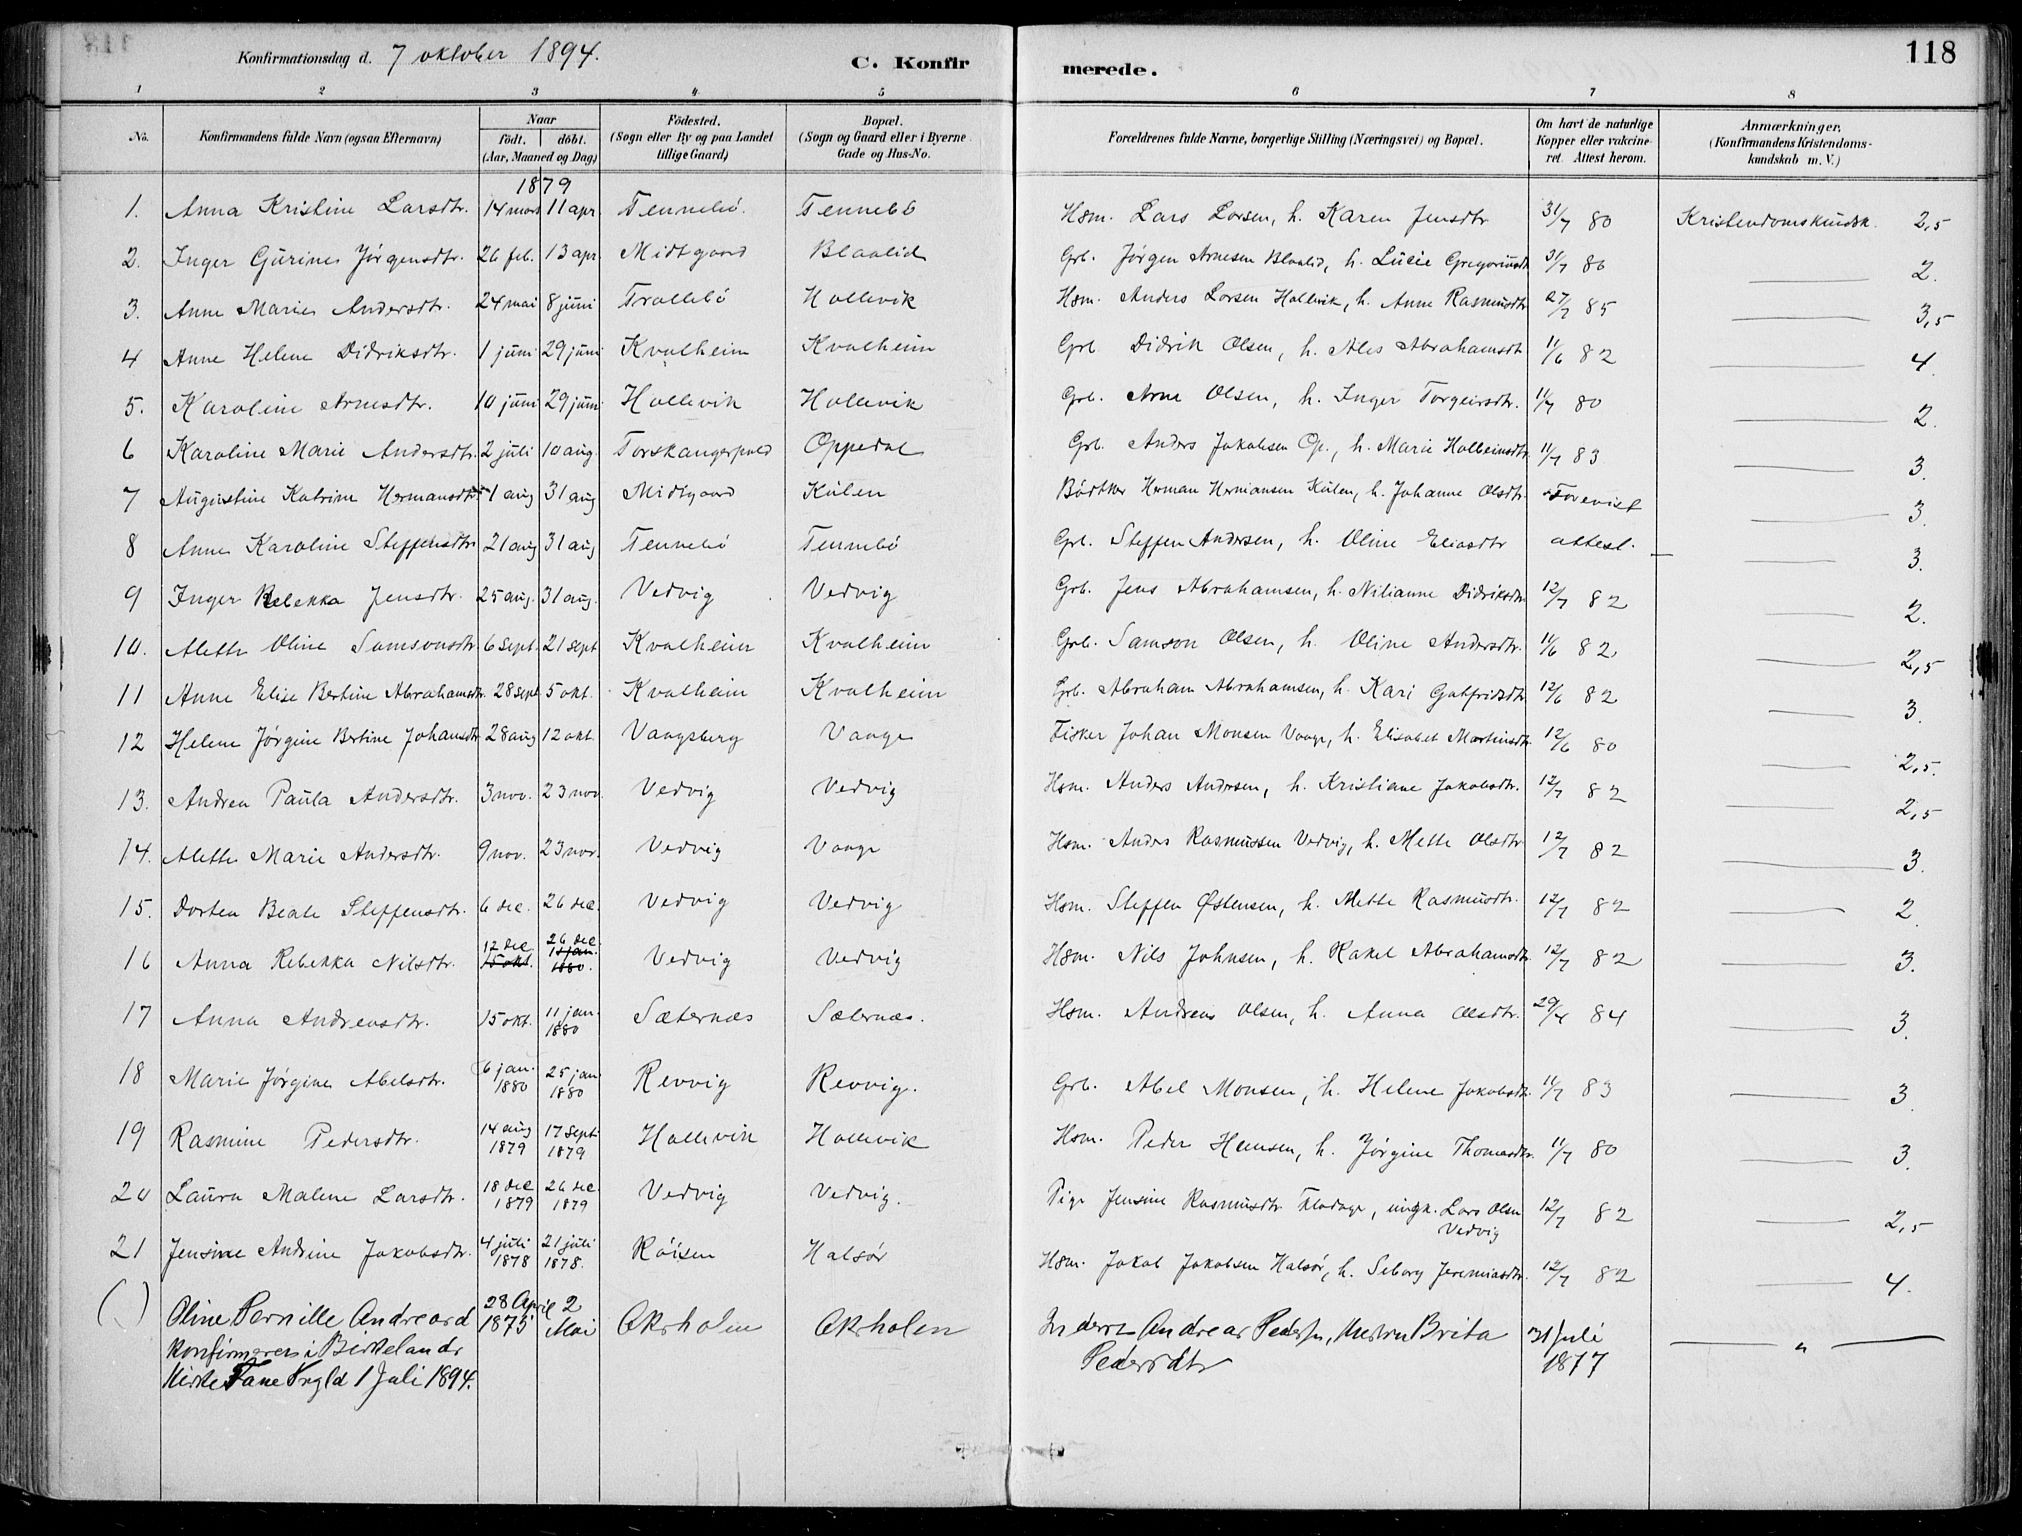 Konfirmationsdag d. 7 oktober 1894. C. Konfirmerede. 118
1 2 3 4 5 6 7 8
No. Konfirmandens fulde Navn (ogsaa Efternavn) Naar født. døbt. (Aar, Maaned og Dag) Fødested. (Sogn eller By og paa Landet tillige Gaard) Bopæl. (Sogn og Gaard eller i Byerne Gade og Hus-No. Forældrenes fulde Navne, borgerlige Stilling (Næringsvei) og Bopæl. Om havt de naturlige Kopper eller vakcineret. Attest herom. Anmærkninger. (Konfirmandens Kristendomskundskab m. V.)
1879
1. Anna Kristine Larsdtr. 14 mars 11 apr. Tennebö. Tennebö Hsm. Lars Larsen, h. Karen Jensdtr 31/7 80 Kristendomskundsk. 2,5
2. Inger Gurine Jørgensdtr. 26 feb. 13 apr. Midtgaard Blaalid Grb. Jørgen Arnesen Blaalid, h. Lucie Gregoriusdt 31/7 86 — 2.
3. Anne Marie Andersdtr. 24 mai 8 juni Trollebö Hollevik Hsm. Anders Larsen Hollevik, h. Anne Rasmusdtr 27/7 85 — 3,5
4 Anne Helene Didriksdtr. 1 juni 29 juni Kvalheim Kvalheim Grb. Didrik Olsen, h. Ales Abrahamsdt 11/6 82 — 4.
5. Karoline Arnesdtr. 10 juni 29 juni Hollevik Hollevik Grb. Arne Olsen, h. Inger Torgeirsdtr. 11/7 80 — 2.
6 Karoline Marie Andersdtr. 2 juli 10 aug. Torskangerpold Oppedal Grb. Anders Jakobsen Op., h. Marie Halbeinsdtr 11/7 83 — 3.
7 Augustine Katrine Hermansdtr 1 aug 31 aug Midtgaard Kulen Bødtker Herman Hermansen Kulen, h. Johanne Olsdtr. Forevist — 3.
8 Anne Karoline Steffensdtr 21 aug 31 aug Tennebö Tennebö Grb. Steffen Andersen, h. Oline Eliasdtr attest. — 3.
9 Inger Rebekka Jensdtr. 25 aug. 31 aug. Vedvig Vedvig Grb. Jens Abrahamsen, h. Nilianne Didriksdtr 12/7 82 — 2.
10. Alette Oline Samsonsdtr 6 sept. 21 sept Kvalheim Kvalheim Grb. Samson Olsen, h. Oline Andersdtr. 11/6 82 — 2,5
11 Anne Elise Bertine Abrahamsdtr. 28 sept 5 okt. Kvalheim Kvalheim Grb. Abraham Abrahamsen, h. Kari Gutfridsdtr 12/6 82 — 3.
12 Helene Jørgine Bertine Johansdtr 28 aug 12 okt. Vaagsberg Vaage Fisker Johan Monsen Vaage, h. Elisabet Martinsdtr. 12/6 80 — 2,5.
13. Andrea Paula Andersdtr. 3 nov. 23 nov. Vedvig Vedvig Hsm. Anders Andersen, h. Kristiane Jakobsdtr. 12/7 82 — 2,5
14. Alette Marie Andersdtr. 9 nov. 23 nov. Vedvig Vaage Hsm. Anders Rasmussen Vedvig, h. Mette Olsdtr 12/7 82 — 3.
15. Dortea Beate Steffensdtr. 6 dec. 26 dec. Vedvig Vedvig Hsm. Steffen Østensen, h. Mette Rasmusdtr. 12/7 82 — 2
16 Anna Rebekka Nilsdtr. 12 dec 15 okt. 26 dec. 11 jan. 1880. Vedvig Vedvig Hsm. Nils Johnsen, h. Rakel Abrahamsdtr 12/7 82 — 3.
17 Anna Andreasdtr. 15 okt. 11 jan. 1880 Sæternæs Sæternæs. Hsm. Andreas Olsen, h. Anna Olsdtr. 29/4 84 — 3.
18 Marie Jørgine Abelsdtr. 6 jan. 1880 25 jan 1880 Revvig Revvig. Grb. Abel Monsen, h. Helene Jakobsdtr. 11/7 83 — 3.
19 Rasmine Pedersdtr. 14 aug 1879 17 sept. 1879 Hollevik Hollevik Hsm. Peder Hansen, h. Jørgine Thomasdtr. 11/7 80 — 3.
20 Laura Malene Larsdtr. 18 dec 1879 26 dec. 1879 Vedvig Vedvig. Pige Jensine Rasmusdtr , ungk. Lars Olsen Vedvig 12/7 82 — 2,5
21 Jensine Andrine Jakobsdtr. 4 juli 1878 21 juli 1878. Röisen Halsør Hsm. Jakob Jakobsen Halsør, h. Seborg Jeremiasdtr. 12/7 82 — 4.
( ) Oline Pernille Andreasd 28 April 1875 2 Mai Akrholen Akrholen Inderst Andreas Peders., Hustru Brita Pedersdtr 31 juli 1877 — " —
konfirmeres i Birkelands
Kirke Fane Prgld 1 Juli 1894.